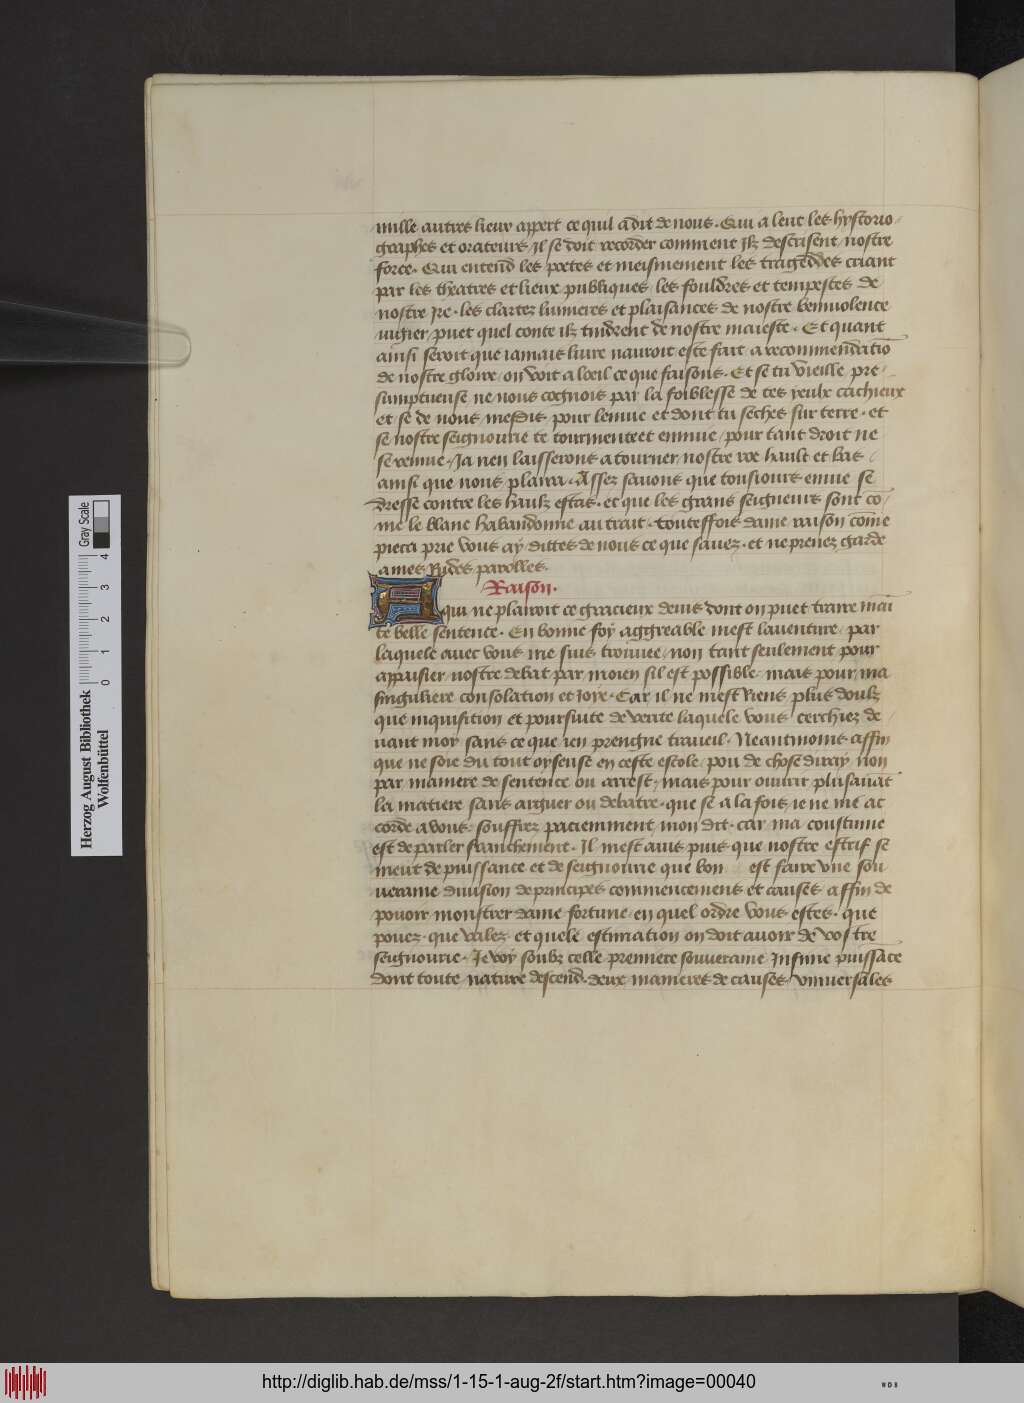 mille autres lieux appert ce quil a dit de nous. Qui a leut les hystorio
graphes et orateurs Il se doit recorder comment Ilz descrisent nostre
force. Qui entend les poetes et meismement les tragedes criant
par les theatres et lieux publiques les fouldres et tempestes de
nostre Ire. les clartez lumieres et plaisances de nostre beniuolence
iugier puet quel conte ilz tindrent de nostre maieste. Et quant
ainsi seroit que iamais liure nauroit este fait a recommendatiō
de nostre gloire on voit a loeil ce que faisons. Et se tu vieille pre
sumptueuse ne nous cognois par la foiblesse de tes yeulx cachieux
et se de nous mesdis pour lenuie et dont tu seches sur terre. et
se nostre seignourie te tourmente et ennuie pour tant droit ne
se remue. Ja nen laisserons a tourner nostre roe hault et bas
ainsi que nous plaira. Assez sauons que tousiours enuie se
dresse contre les haulz estas. et que les grans seigneurs sont cō
me le blanc habandonne au trait. Touteffois dame raison cōme
pieca prie vous ay dittes de nous ce que sauez. et ne prenez garde
a mes Rudes parolles.
Raison.
A qui ne plairoit ce gracieux deuis dont on puet traire mai
te belle sentence. En bonne foy aggreable mest lauenture par
laquele auec vous me suis trouuee non tant seulement pour
appaisier nostre debat par moien sil est possible mais pour ma
singuliere consolation et Joye. Car il ne mest Riens plus doulz
que inquisition et poursuite de verite laquele vous cerchiez de
uant moy sans ce que ien prengne traueil. Neantmoins affin
que ne soie du tout oyseuse en ceste escole pou de chose diray non
par maniere de sentence ou arrest. mais pour ouurir plusauāt
la matiere sans arguer ou debatre. que se a la fois ie ne me ac
corde a vous souffrez paciemment mon dit. car ma coustume
est de parler franchement. Il mest auis puis que nostre estrif se
meut de puissance et de seignourie que bon est faire vne sou
ueraine diuision de principes commencemens et causes affin de
pouoir monstrer dame fortune en quel ordre vous estes. que
pouez. que valez et quele estimation on doit auoir de vostre
seignourie. Je voy soubz celle premiere souueraine Infinie puissāce
dont toute nature descend. deux manieres de causes vniuersales
Herzog August Bibliothek
Wolfenbüttel
0 1 2 3 4
Gray Scale
http://diglib.hab.de/mss/1-15-1-aug-2f/start.htm?image=00040
WDB